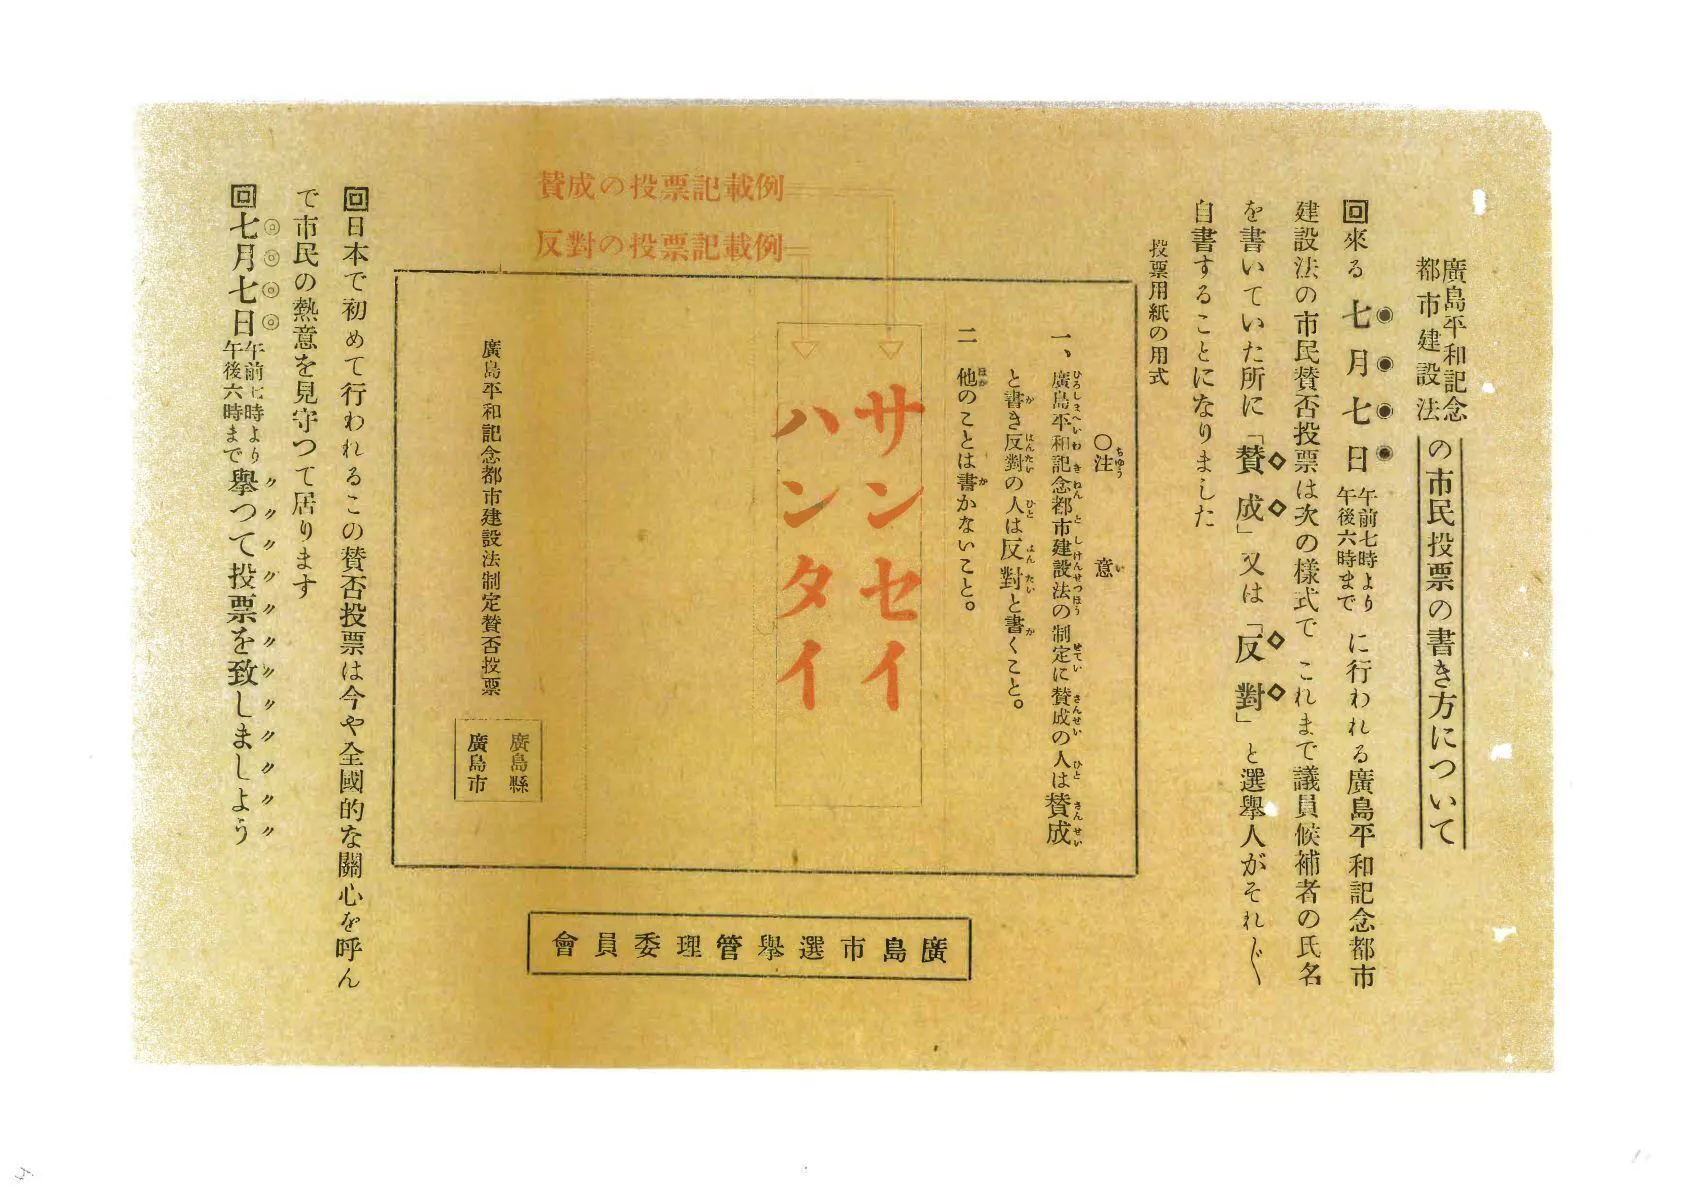 廣島平和記念
都市建設法
の市民投票の書き方について
回來る七月七日午前七時より
午後六時までに行われる廣島平和記念都市
建設法の市民賛否投票は次の様式で これまで議員候補者の氏名
を書いていた所に「賛成」又は「反對」と選擧人がそれ〴〵
自書することになりました
投票用紙の用式
賛成の投票記載例
反對の投票記載例
〇注意
ちゆうい
一、廣島平和記念都市建設法の制定に賛成の人は賛成
ひろしまへいわきねんとしけんせつほう せてい さんせい ひと さんせい
と書き反對の人は反對と書くこと。
か はんたい ひと はんたい か
二 他のことは書かないこと。
ほか か
サンセイ
ハンタイ
廣島平和記念都市建設法制定賛否投票
廣島縣
廣島市
廣島市選擧管理委員會
回日本で初めて行われるこの賛否投票は今や全國的な關心を呼ん
で市民の熱意を見守つて居ります
回七月七日午前七時より
午後六時まで擧つて投票を致しましよう